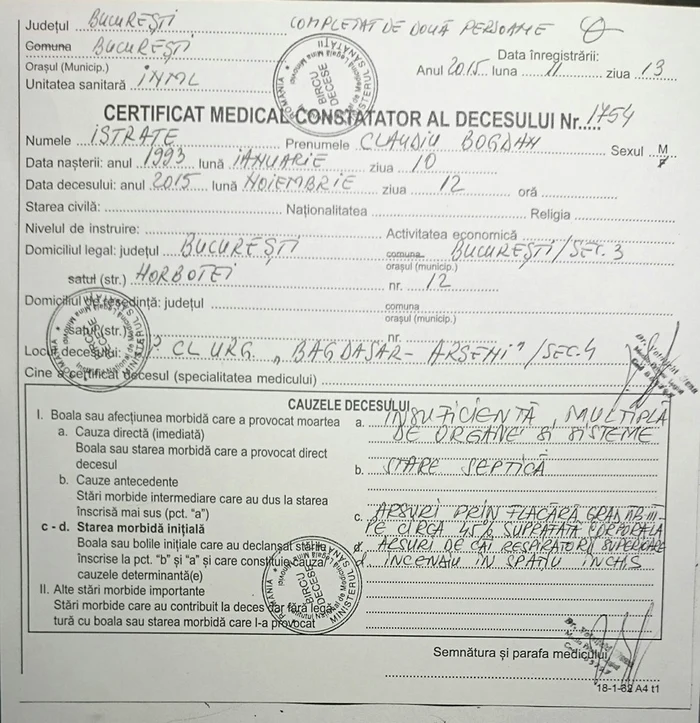 Județul BUCUREȘTI COMPLETAT DE DOUĂ PERSOANE
Comuna BUCUREȘTI
Orașul (Municip.) Data înregistrării:
Unitatea sanitară INML Anul 2015 luna 11 ziua 13
CERTIFICAT MEDICAL CONSTATATOR AL DECESULUI Nr. 1754
Numele ISTRATE Prenumele CLAUDIU BOGDAN Sexul M
F
Data nașterii: anul 1993 lună IANUARIE ziua 10
Data decesului: anul 2015 lună NOIEMBRIE ziua 12 oră
Starea civilă: Naționalitatea Religia
Nivelul de instruire: Activitatea economică
Domiciliul legal: județul BUCUREȘTI comuna BUCUREȘTI/SEC.3
orașul (municip.)
satul (str.) HORBOTEI nr. 12
Domiciliul de reședință: județul comuna
orașul (municip.)
satul (str.) nr.
Locul decesului: SP. CL URG. „BAGDASAR-ARSENI"/SEC.4
Cine a certificat decesul (specialitatea medicului)
CAUZELE DECESULUI
I. Boala sau afecțiunea morbidă care a provocat moartea a. INSUFICIENȚĂ MULTIPLĂ
a. Cauza directă (imediată) DE ORGANE ȘI SISTEME
Boala sau starea morbidă care a provocat direct
decesul b. STARE SEPTICĂ
b. Cauze antecedente
Stări morbide intermediare care au dus la starea
înscrisă mai sus (pct. "a") c. ARSURI PRIN FLACĂRĂ GRAD IIB-III
c - d. Starea morbidă inițială PE CIRCA 45% SUPRAFAȚĂ CORPORALĂ
Boala sau bolile inițiale care au declanșat stările ARSURI DE CĂI RESPIRATORII SUPERIOARE
înscrise la pct. "b" și "a" și care constituie cauza d. INCENDIU ÎN SPAȚIU ÎNCHIS
cauzele determinantă(e)
II. Alte stări morbide importante
Stări morbide care au contribuit la deces dar fără legă-
tură cu boala sau starea morbidă care l-a provocat
Semnătura și parafa medicului
18-1-82 A4 t1